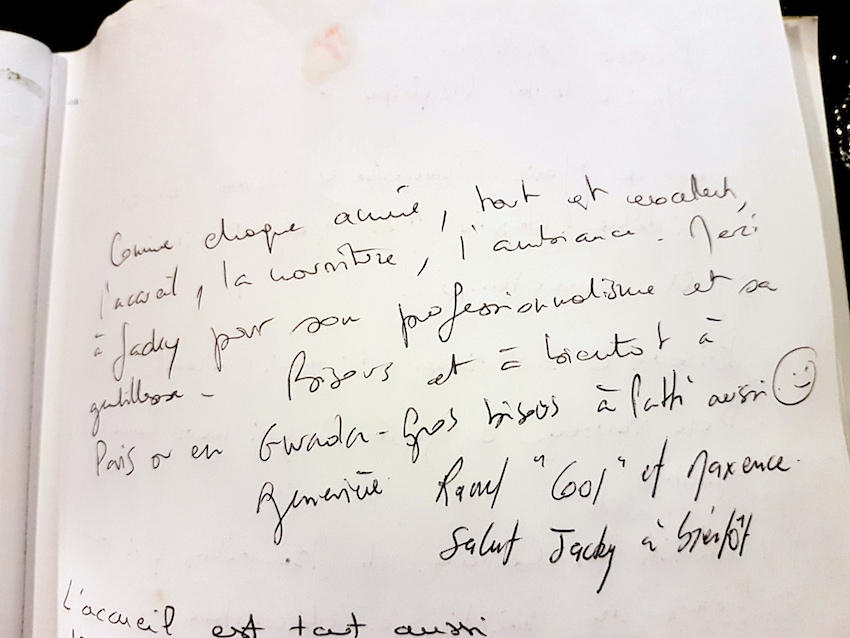 Comme chaque année, tout est excellent,
l'accueil, la nourriture, l'ambiance. Merci
à Jacky pour son professionnalisme et sa
gentillesse - Bisous et à bientot à
Paris ou en Gwada - Gros bisous à Patti aussi
Geneviève Raoul "Gol" et Maxence.
Salut Jacky à bientôt
L'accueil est tout aussi